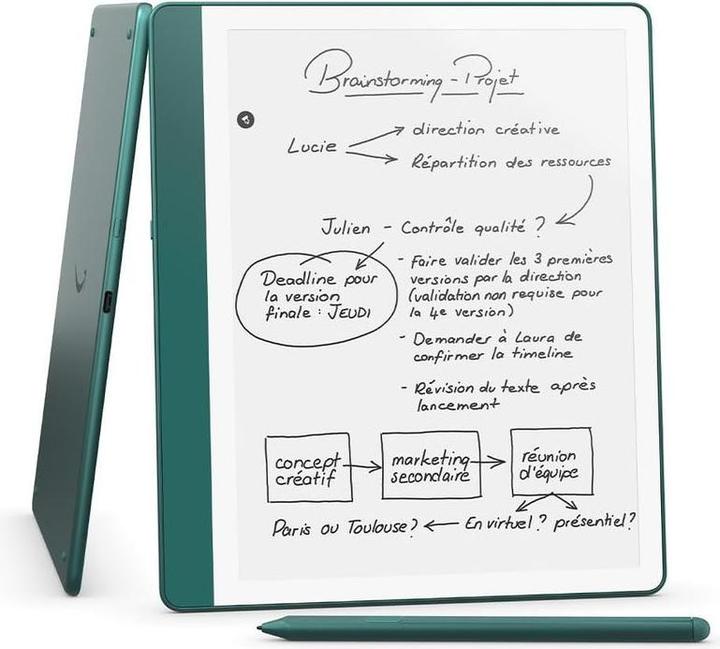 Brainstorming - Projet
Lucie
direction créative
Répartition des ressources
Julien - Contrôle qualité ?
Deadline pour
la version
finale : JEUDI
- Faire valider les 3 premières
versions par la direction
(validation non requise pour
la 4e version)
- Demander à Laura de
confirmer la timeline
- Révision du texte après
lancement
concept
créatif
marketing
secondaire
réunion
d'équipe
Paris ou Toulouse ?
En virtuel ? présentiel ?